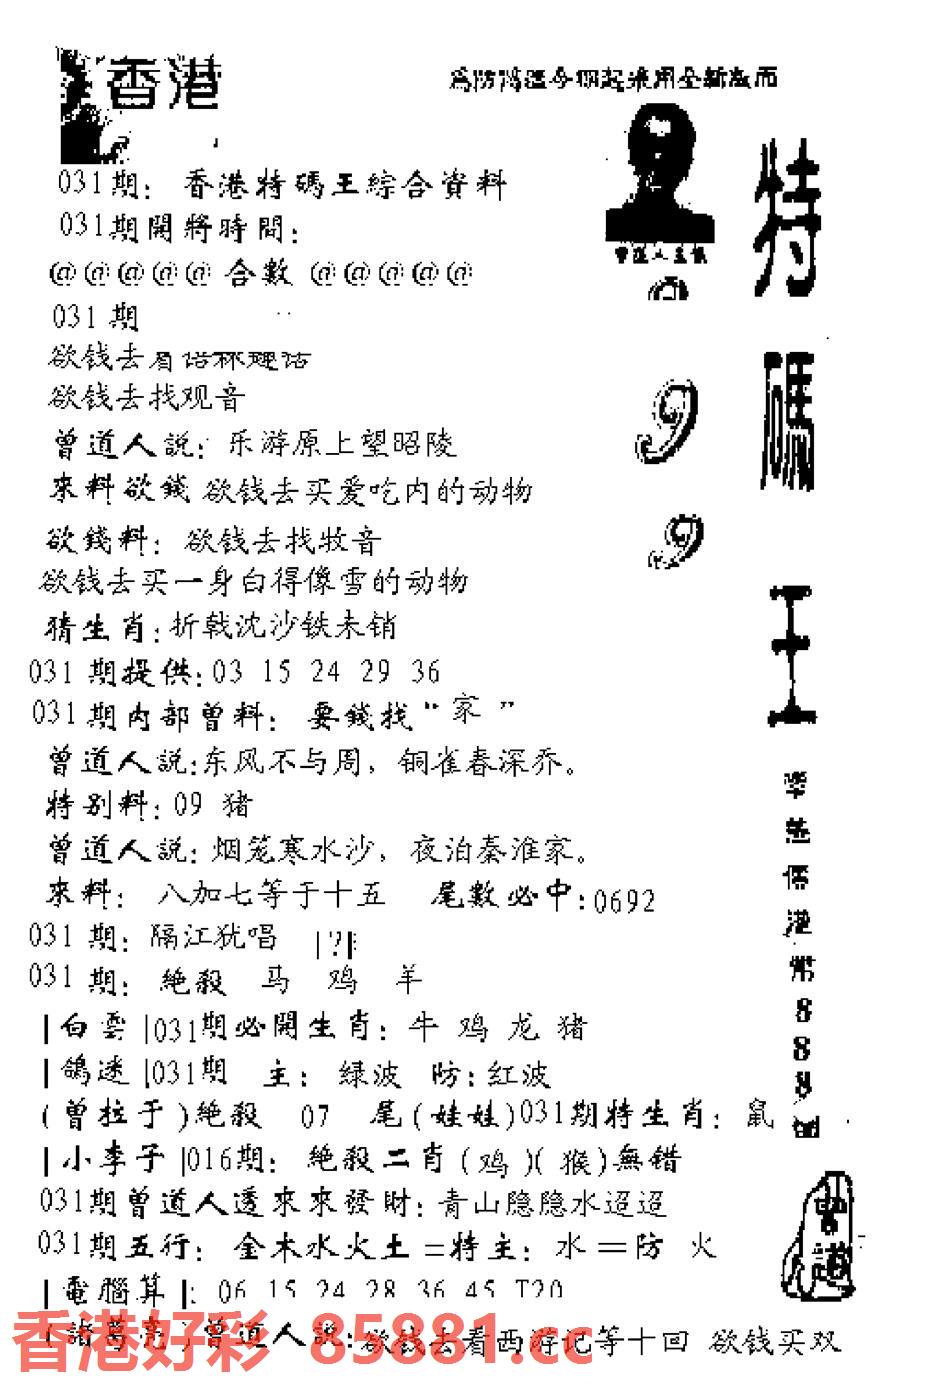 香港
031期：香港特碼王綜合資料
031期開將時間：
@@@@@ 合數 @@@@@
031期
欲钱去
欲钱去找观音
曾道人説：乐游原上望昭陵
來料欲錢 欲钱去买爱吃内的动物
欲錢料：欲钱去找牧音
欲钱去买一身白得像雪的动物
猜生肖：折戟沈沙铁未销
031期提供：03 15 24 29 36
031期内部曾料：要錢找“家”
曾道人説：东风不与周，铜雀春深乔。
特别料：09 猪
曾道人説：烟笼寒水沙，夜泊秦淮家。
來料：八加七等于十五 尾數必中：0692
031期：隔江犹唱 |?|
031期：絶殺 马 鸡 羊
|白雲|031期必開生肖：牛 鸡 龙 猪
|鴿迷|031期 主：绿波 防：红波
(曾拉于)絶殺 07 尾(娃娃)031期特生肖：鼠
|小李子|016期：絶殺二肖(鸡)(猴)無错
031期曾道人透來來發財：青山隐隐水迢迢
031期五行：金木水火土=特主：水=防 火
|電腦算|：06 15 24 28 36 45 T20
(諸葛亮)曾道人説：欲钱去看西游记等十回 欲钱买双
香港好彩 85881.cc
特碼王
9
9
港幣888
曾道